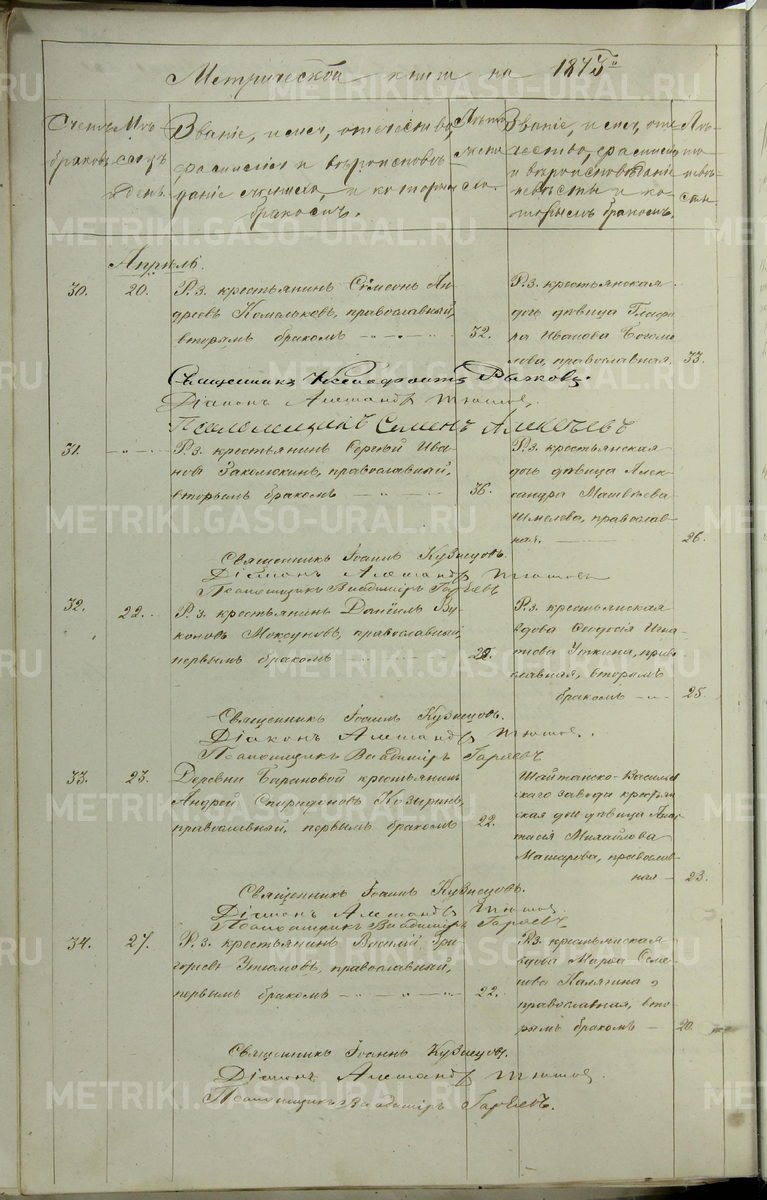 Метрической книги на 1875
Счетъ браковъ.
Мѣсяцъ и день.
Званіе, имя, отчество,
фамилія и вѣроисповѣ-
даніе жениха, и которымъ
бракомъ.
Лѣта
жени
ха.
Званіе, имя, отче
чество, фамилія
и вѣроисповѣданіе
невѣсты и ко-
торымъ бракомъ.
Лѣ-
та
невѣ-
сты.
Апрѣль.
30. 20.
Р. з. крестьянинъ Сѵмеонъ Ан-
дреевъ Комельковъ, православный,
вторымъ бракомъ 32.
Р. з. крестьянская
дочь дѣвица Глафи-
ра Иванова
православная, 33.
Священникъ Ксенофонтъ Рыжовъ.
Діаконъ Александръ Тюшов
Псаломщикъ Семенъ Алексѣевъ
31.
Р. з. крестьянинъ Сергѣй Ива-
новъ Заколюкинъ, православный,
вторымъ бракомъ 36.
Р. з. крестьянская
дочь дѣвица Алек-
сандра Матвѣева
Шмелева, православ-
ная. 26.
Священникъ Іоаннъ Кузнецовъ.
Діаконъ Александръ Тюшов
Псаломщикъ Владиміръ Гаряевъ
32. 22.
Р. з. крестьянинъ Даніилъ Ву-
коловъ православный,
первымъ бракомъ 22.
Р. з. крестьянская
вдова Ѳеодосія Игна-
тіева Уткина, прав-
славная, вторымъ
бракомъ 25.
Священникъ Іоаннъ Кузнецовъ.
Діаконъ Александръ Тюшов
Псаломщикъ Владиміръ Гаряевъ
33. 23.
Деревни Барановой крестьянинъ
Андрей Спиридоновъ Козыринъ,
православный, первымъ бракомъ 22.
Шайтанско-Васильев
скаго завода крестьян
ская дочь дѣвица Анас
тасія Михайлова
Макарова, православ-
ная 23.
Священникъ Іоаннъ Кузнецовъ.
Діаконъ Александръ Тюшов
Псаломщикъ Владиміръ Гаряевъ
34. 27.
Р. з. крестьянинъ Василій Гри-
горьевъ Утюмовъ, православный,
первымъ бракомъ 22.
Р. з. крестьянская
вдова Марѳа Семе-
нова
православная, вто-
рымъ бракомъ 20.
Священникъ Іоаннъ Кузнецовъ.
Діаконъ Александръ Тюшов
Псаломщикъ Владиміръ Гаряевъ.
METRIKI.GASO-URAL.RU